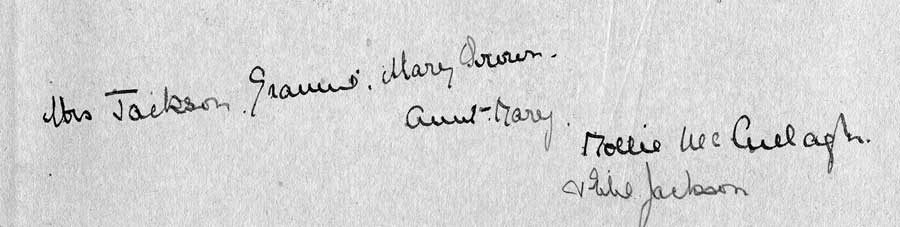 Mrs Jackson. Grannie. Mary Brown.
Aunt Mary.
Mollie McCullagh.
Jackson